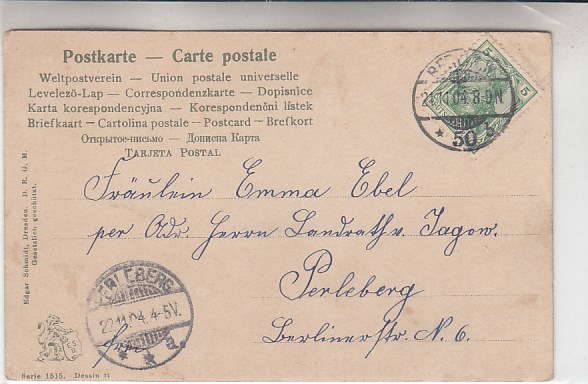 Postkarte — Carte postale
Weltpostverein — Union postale universelle
Levelező-Lap — Correspondenzkarte — Dopisnice
Karta korespondencyjna — Korespondenční lístek
Briefkaart — Cartolina postale — Postcard — Brefkort
Открытое-письмо — Дописна Карта
TARJETA POSTAL
BERLIN
21.11.04.8-9N
* 50
5
5
Fräulein Emma Ebel
per Adr. Herrn Landrath v. Jagow.
Perleberg
Berlinerstr. N. 6.
PERLEBERG
22.11.04.4-5V.
* * a
Edgar Schmidt, Dresden. D. R. G. M.
Gesetzlich geschützt.
Serie 1515. Dessin